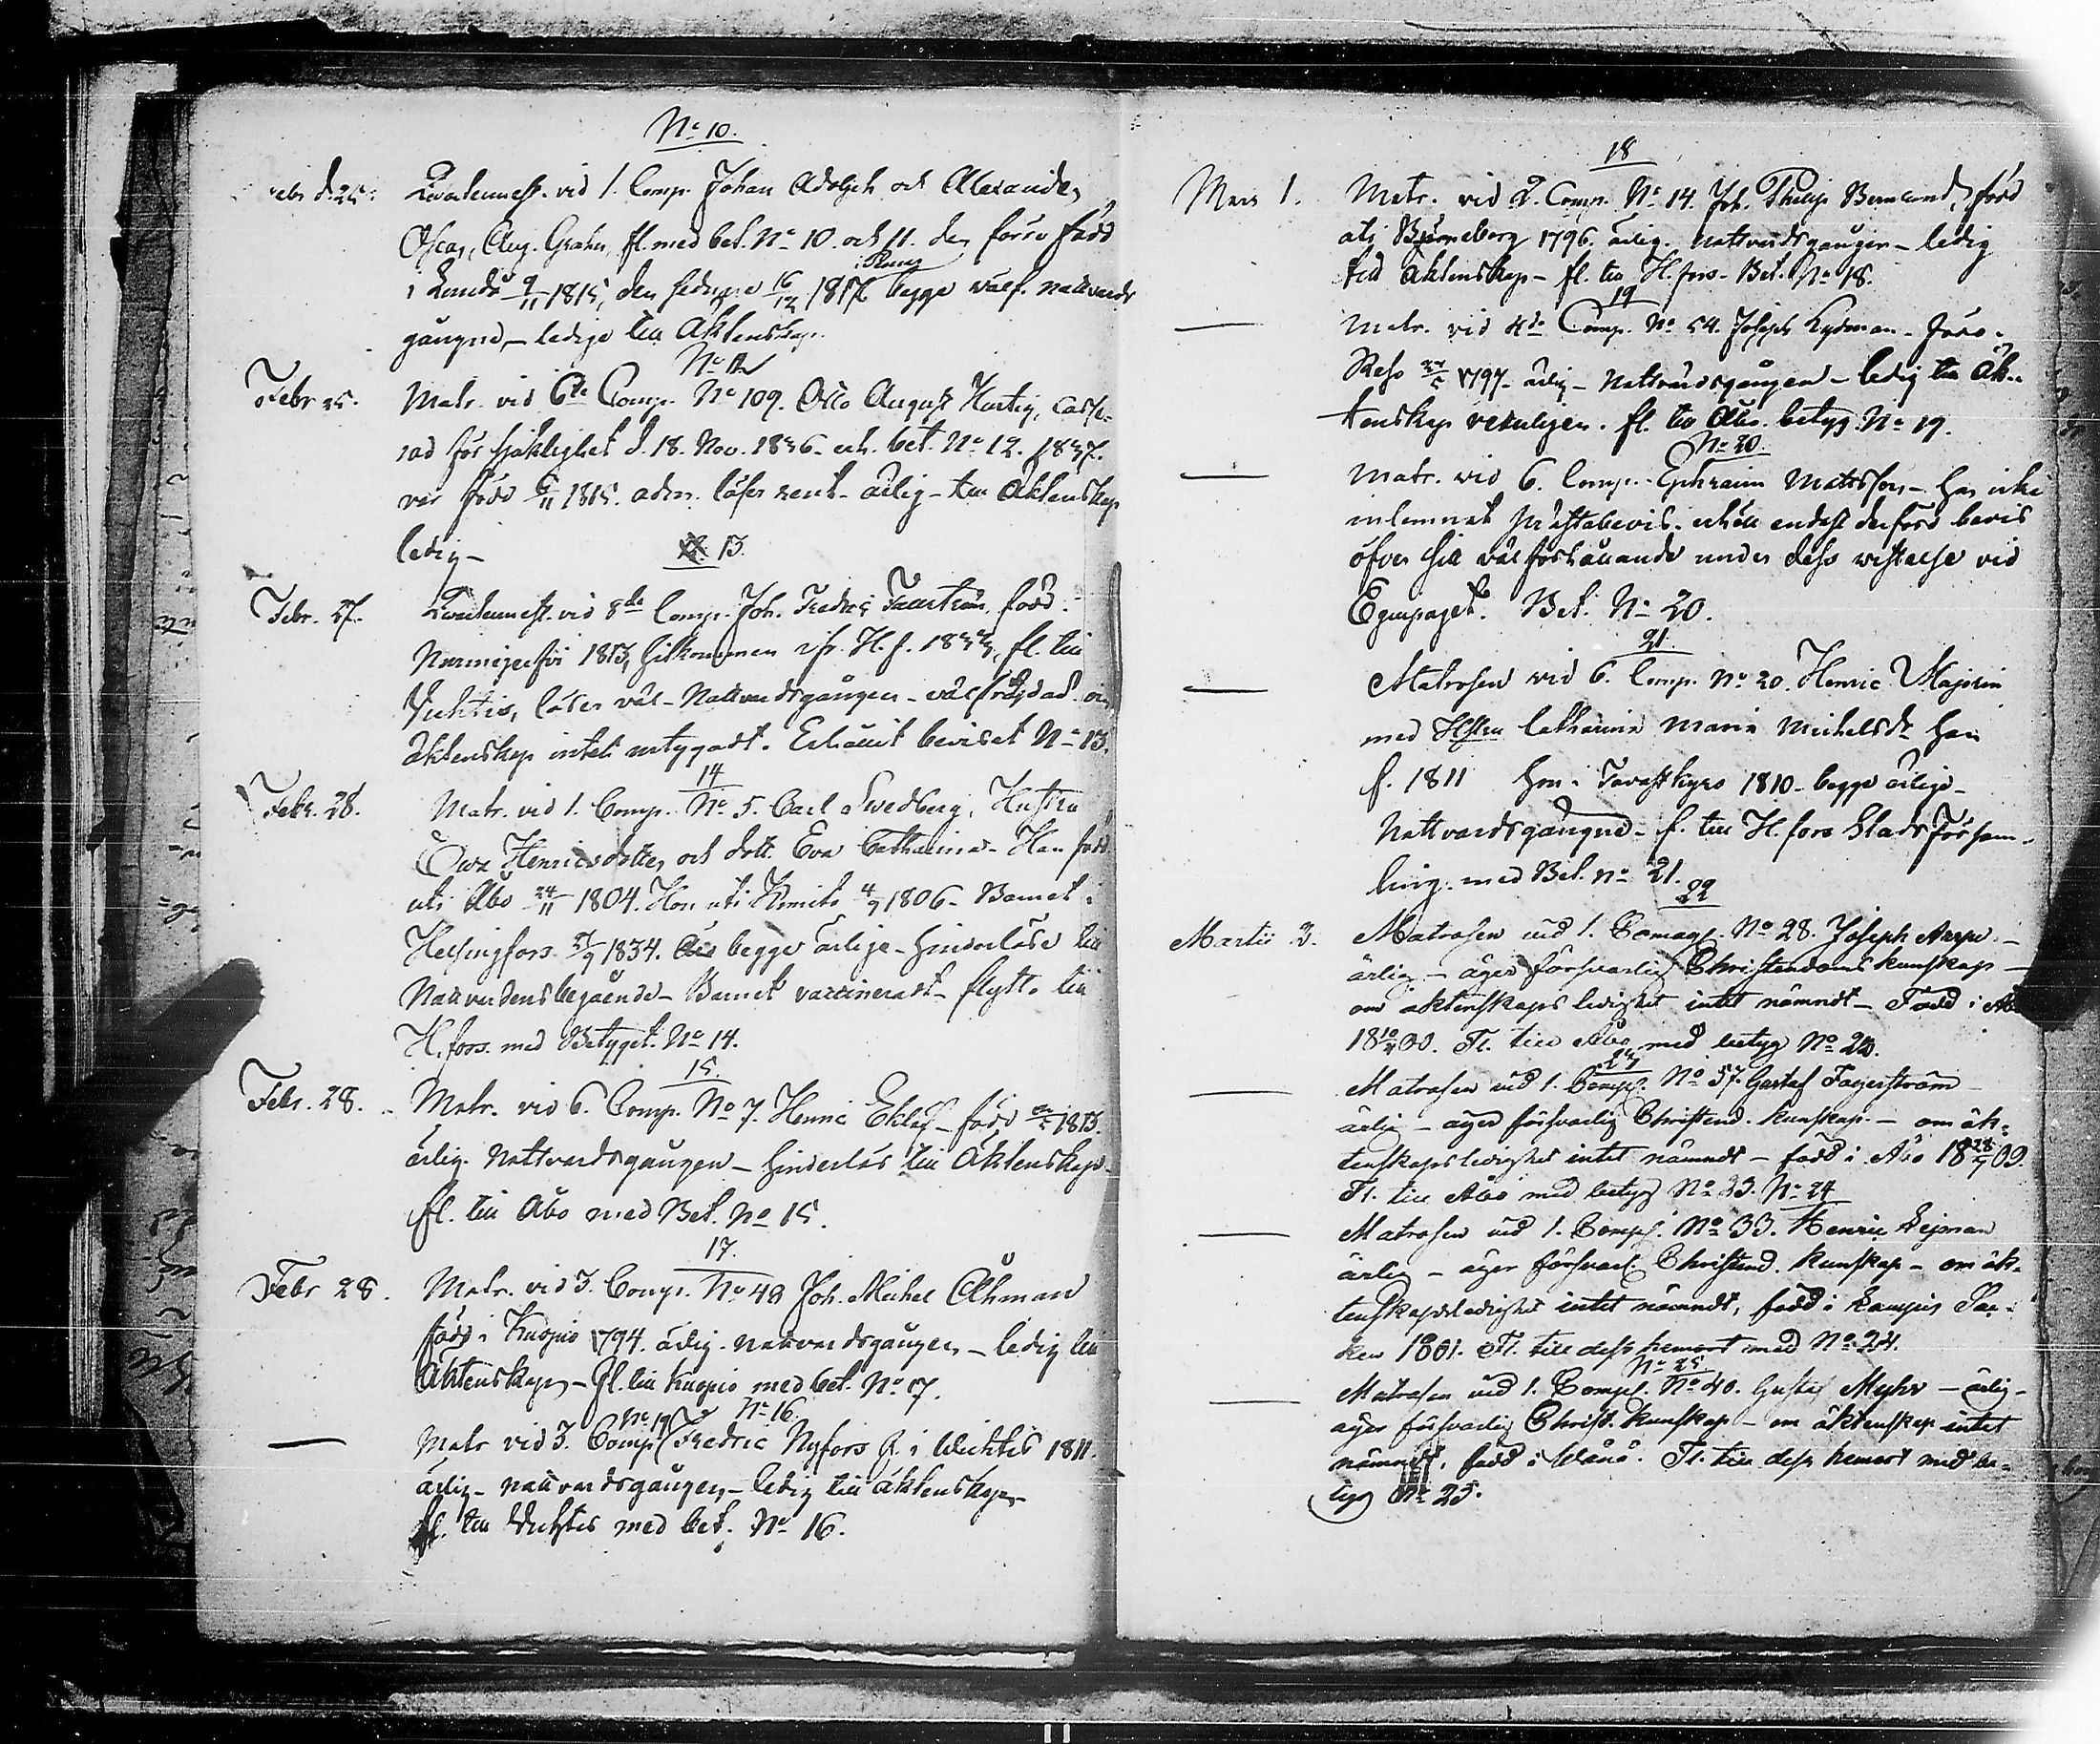 No 10.
Febr d. 25. Qvartermest. vid 1. Comp. Johan Adolph och Alexander
Oscar, Aug. Grahn, fl. med bet. No 10. och 11. den förre född
i Lundo 9/11 1815, den sednare 16/12 1817 begge välf. nattvards
gångne, – ledige till Äktenskap.
No 12
Febr 25. Matr. vid 6te Comp. No 109. Otto August Hartig, casse-
rad för sjuklighet d. 18. Nov. 1836. erh. bet. No 12. 1837.
var född 6/11 1815. adm. läser rent – ärlig – till Äktenskap
ledig –
13.
Febr. 27. Qvartermest. vid 8de Comp. Joh. Fredric född
Nurmijervi 1813, hitkommen ifr. H.f. 1833, fl. till
Vichtis, läser väl – Nattvardsgången – välfrägdad om
äktenskap intet intygadt. Erhållit beviset No 13.
14
Febr. 28. Matr. vid 1. Comp. No 5. Carl Swedberg, Hustru
Eva Henricsdotter och dott. Eva Catharina – Han född
uti Åbo 24/11 1804. Hon uti Kimito 4/9 1806 – Barnet i
Helsingfors 27/9 1834. begge ärlige – hinderlöse till
Nattvardens begående – Barnet vaccineradt – flytta till
H.fors med Betyget No 14.
15.
Febr. 28. Matr. vid 6. Comp. No 7. Henric Eklöf – född 1813.
ärlig. Nattvardsgången – hinderlös till Äktenskap –
fl. till Åbo med Bet. No 15.
17.
Febr 28. Matr. vid 3. Comp. No 48 Joh. Michel Åhman
född i Kuopio 1794. ärlig. nattvardsgången – ledig till
Äktenskap – fl. till Kuopio med bet. No 17.
No 16.
— Matr vid 3. Comp. No 19 Fredric Nyfors f. i Wichtis 1811.
ärlig – nattvardsgången – ledig till äktenskap –
fl. till Vichtis med bet. No 16.
18
Mars 1. Matr. vid 2. Comp. No 14. Joh. Philip Bernlund, född
uti Björneborg 1796. ärlig. nattvardsgången – ledig
till Äktenskap – fl. till H.fors – Bet. No 18.
19
— Matr. vid 4de Comp. No 54. Joseph Lydman – född
Reso 1797 – ärlig – Nattvardsgången – ledig till Äk-
tenskap veterligen. fl. till Åbo. betyg. No 19.
No 20.
— Matr. vid 6. Comp. Ephraim Mattsson – har icke
inlemnat Prästabevis. erhöll endast derföre bevis
öfver sitt välförhållande under dess vistelse vid
Equipaget. Bet. No 20.
21.
— Matrosen vid 6. Comp. No 20. Henric Majorin
med Hstru Catharina Maria Michelsdr. han
f. 1811 hon i Tavastkyro 1810 – begge ärlige –
Nattvardsgångne – f. till H.fors Stads Försam-
ling. med Bet. No 21.
22
Martii 3. Matrosen vid 1. Compagn. No 28. Joseph –
ärlig – äger försvarlig Christendoms kunskap –
om äktenskaps ledighet intet nämndt – Född i Åbo
18 00. Fl. till Åbo med betyg No 22.
— Matrosen vid 1. Comp. No 57. Gustaf Fagerström
ärlig – äger försvarlig Christend. kunskap – om äk-
tenskapsledighet intet nämndt – född i Åbo 18 28/7 09.
Fl. till Åbo med betyg No 23. No 24
— Matrosen vid 1. Comp. No 33. Henric Lejman
ärlig – äger försvarl. Christend. kunskap – om äk-
tenskapsledighet intet nämndt, född i Kampis Soc-
ken 1801. Fl. till dess hemort med No 24.
No 25.
— Matrosen vid 1. Comp. No 40. Gustaf Myhr – ärlig –
äger försvarlig Christ. kunskap – om äktenskap intet
nämndt, född i Wånå. Fl. till dess hemort med be-
tyg No 25.